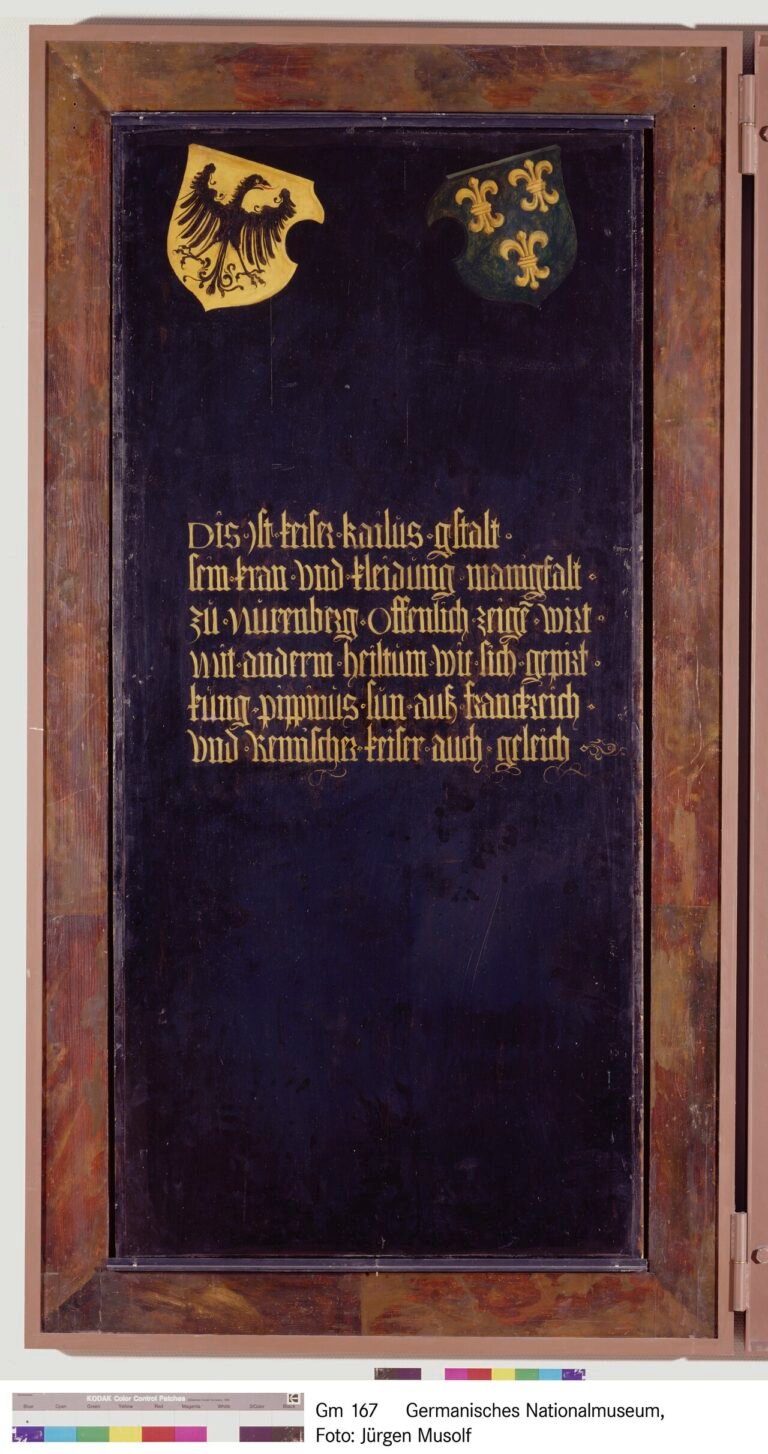 Dis · ist · keiser · karlus · gstalt ·
sein · kran · vnd · kleidung manigfalt ·
zu · Nurenberg · Offenlich zeigē wirt ·
Mit · anderm · heiltum · wie sich · gepirt ·
kung · pippinus · sun · auß franckreich ·
Vnd · Remischer · keiser · auch · geleich
KODAK Color Control Patches
Blue Cyan Green Yellow Red Magenta White 3/Color Black
Gm 167 Germanisches Nationalmuseum,
Foto: Jürgen Musolf